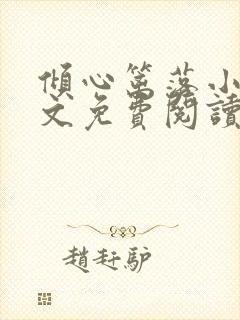 傾心篱落小
文免費閱讀
趙赶驴